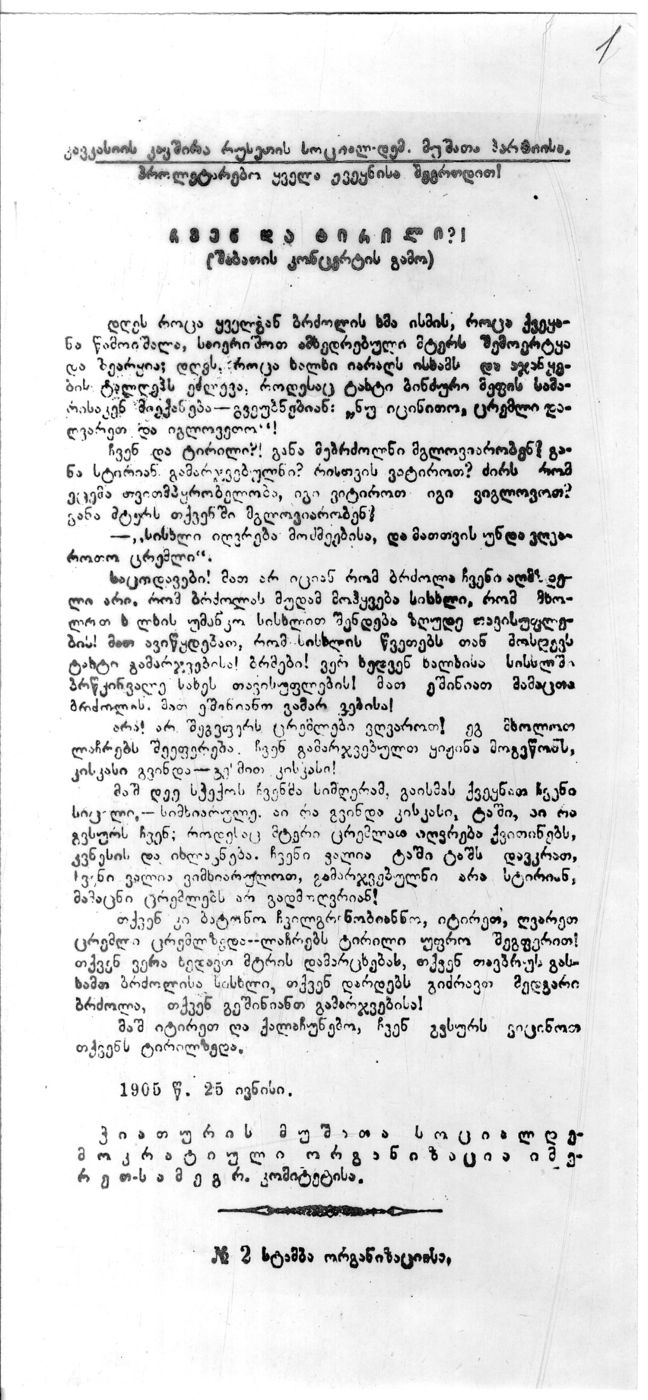 1
კავკასიის კავშირი რუსეთის სოციალ-დემ. მუშათა პარტიისა.
პროლეტარებო ყველა ქვეყნისა შეერთდით!
ჩვენ და ტირილი?!
(შაბათის კონცერტის გამო)
დღეს როცა ყველგან ბრძოლის ხმა ისმის, როცა ქვეყა-
ნა წამოიშალა, საიერიშოთ ამხედრებული მტერს შემოერტყა
და შეარყია; დღეს, როცა ხალხი იარაღს ისხამს და აჯანყე-
ბის ტალღებს ეძლევა, როდესაც ტახტი ბინძური მეფის სამა-
რისაკენ მიექანება—გვეუბნებიან: „ნუ იცინითო, ცრემლი და-
ღვარეთ და იგლოვეთო“!
ჩვენ და ტირილი?! განა მებრძოლნი მგლოვიარობენ? გა-
ნა სტირიან გამარჯვებულნი? რისთვის ვატიროთ? ძირს რომ
ეცემა თვითმპყრობელობა, იგი ვიტიროთ იგი ვიგლოვოთ?
განა მტერს თქვენში მგლოვიარობენ?
—„სისხლი იღვრება მოძმეებისა, და მათთვის უნდა ვღვა-
როთო ცრემლი“.
საცოდავები! მათ არ იციან რომ ბრძოლა ჩვენი აღმზდე-
ლი არი, რომ ბრძოლას მუდამ მოჰყვება სისხლი, რომ მხო-
ლოთ ხალხის უმანკო სისხლით შენდება ზღუდე თავისუფლე-
ბის! მათ ავიწყდებათ, რომ სისხლის წვეთებს თან მოსდევს
ტახტი გამარჯვებისა! ბრმები! ვერ ხედვენ ხალხისა სისხლში
ბრწყინვალე სახეს თავისუფლების! მათ ეშინიათ მამაცთა
ბრძოლის. მათ ეშინიანთ გამარჯვებისა!
არა! არ შეგვფერს ცრემლები ვღვაროთ! ეგ მხოლოთ
ლაჩრებს შეეფერება. ჩვენ გამარჯვებულთ ყიჟინა მოგვწონს,
კისკასი გვინდა— კისკასი!
მაშ დეე სჭექოს ჩვენმა სიმღერამ, გაისმას ქვეყნათ ჩვენი
სიცილი,—სიმხიარულე. აი რა გვინდა კისკასი, ტაში, აი რა
გვსურს ჩვენ; როდესაც მტერი ცრემლათ იღვრება ქვითინებს,
კვნესის და იხლაკნება. ჩვენი ვალია ტაში ტაშს დავკრათ,
ჩვენი ვალია ვიმხიარულოთ, გამარჯვებულნი არა სტირიან,
მამაცნი ცრემლებს არ გადმოღვრიან!
თქვენ კი ბატონო იტირეთ, ღვარეთ
ცრემლი ცრემლზედა--ლაჩრებს ტირილი უფრო შეგფერით!
თქვენ ვერა ხედავთ მტრის დამარცხებას, თქვენ თავბრუს გას-
ხამთ ბრძოლისა სისხლი, თქვენ დარდებს გიძრავთ მედგარი
ბრძოლა, თქვენ გეშინიანთ გამარჯვებისა!
მაშ იტირეთ ღა ქალაჩუნებო, ჩვენ გვსურს ვიცინოთ
თქვენს ტირილზედა.
1905 წ. 25 ივნისი.
ჭიათურის მუშათა სოციალდე-
მოკრატიული ორგანიზაცია იმე-
რეთ-სამეგრ. კომიტეტისა.
№ 2 სტამბა ორგანიზაციისა.